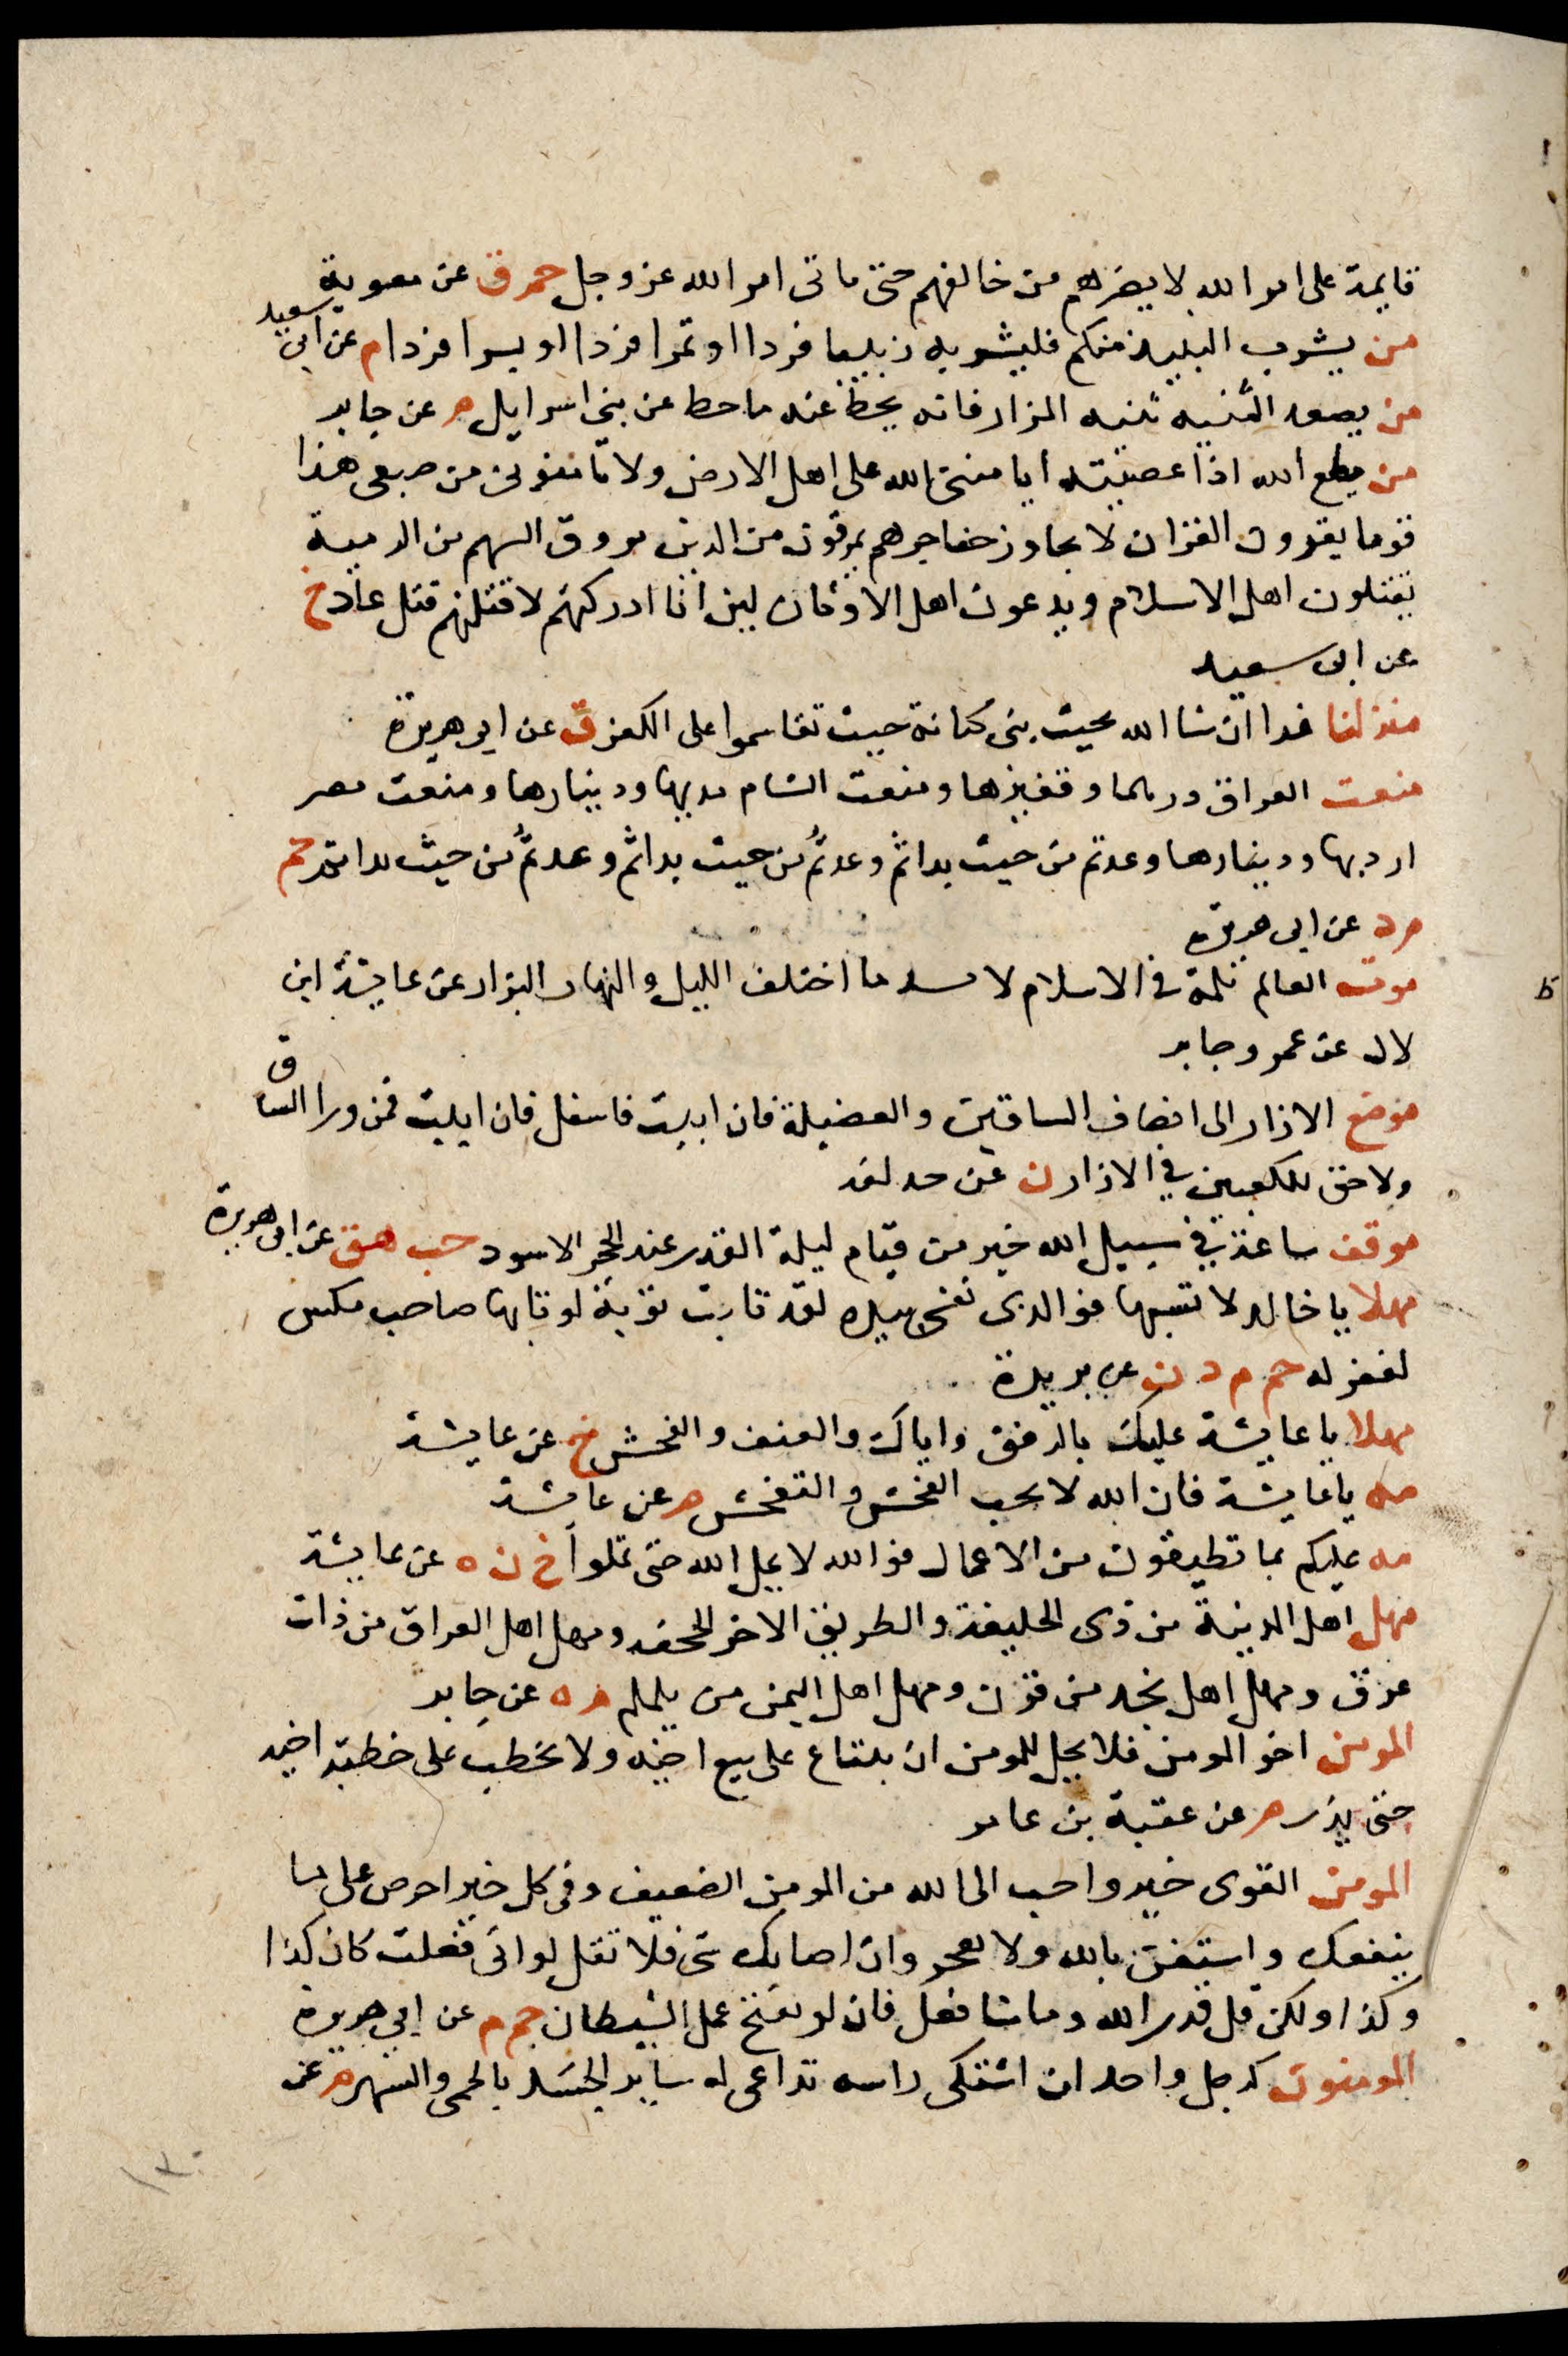 قايمة على امر الله لا يضرهم من خالفهم حتى ياتى امر الله عز وجل حم ق عن معوية
من يشرب النبيذ منكم فليشربه زبيبا فردا او تمرا فردا او بسرا فردا م عن ابى سعيد
من يصعد الثنيه ثنيه المرار فانه يحط عنه ما حط عن بنى اسرايل م عن جابر
من يطع الله اذا عصيته ايامننى الله على اهل الارض ولا تامنونى من ضيضى هذا
قوما يقرون القران لا يجاوز حناجرهم يمرقون من الدين مروق السهم من الرمية
يقتلون اهل الاسلام ويدعون اهل الاوثان لين انا ادركتهم لاقتلنهم قتل عاد خ
عن ابى سعيد
منزلنا غدا ان شا الله بخيف بنى كنانة حيث تقاسموا على الكفر ق عن ابى هريرة
منعت العراق درهمها وقفيزها ومنعت الشام مديها ودينارها ومنعت مصر
اردبها ودينارها وعدتم من حيث بداتم وعدتم من حيث بداتم وعدتم من حيث بداتم حم
م د عن ابى هريرة
موت العالم ثلمة فى الاسلام لا تسد ما اختلف الليل والنهار البزار عن عايشة ابن
لال عن عمر وجابر
موضع الازار الى انصاف الساقين والعضلة فان ابيت فاسفل فان ابيت فمن ورا الساق
ولا حق للكعبين فى الازار ن عن حذيفه
موقف ساعة فى سبيل الله خير من قيام ليلة القدر عند الحجر الاسود حب هق عن ابى هريرة
مهلا يا خالد لا تسبها فوالذى نفسى بيده لقد تابت توبة لو تابها صاحب مكس
لغفر له حم م د ن عن بريدة
مهلا يا عايشة عليك بالرفق واياك والعنف والفحش خ عن عايشة
مه يا عايشة فان الله لا يحب الفحش والتفحش م عن عايشة
مه عليكم بما تطيقون من الاعمال فوالله لا يمل الله حتى تملوا خ ن ه عن عايشة
مهل اهل المدينة من ذى الحليفة والطريق الاخر الجحفه ومهل اهل العراق من ذات
عرق ومهل اهل نجد من قرن ومهل اهل اليمن من يلملم م ه عن جابر
المومن اخو المومن فلا يحل للمومن ان يبتاع على بيع اخيه ولا يخطب على خطبة اخيه
حتى يذر م عن عقبة بن عامر
المومن القوى خير واحب الى الله من المومن الضعيف وفى كل خير احرص على ما
ينفعك واستعن بالله ولا تعجز وان اصابك شى فلا تقل لو انى فعلت كان كذا
وكذا ولكن قل قدر الله وما شا فعل فان لو تفتح عمل الشيطان حم م عن ابى هريرة
المومنون كرجل واحد ان اشتكى راسه تداعى له ساير الجسد بالحمى والسهر م عن
١٣٠